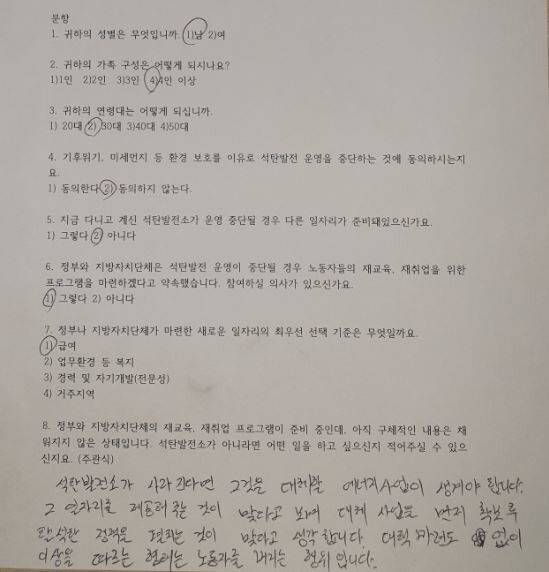 문항
1. 귀하의 성별은 무엇입니까. 1)남 2)여
2. 귀하의 가족 구성은 어떻게 되시나요?
1)1인 2)2인 3)3인 4)4인 이상
3. 귀하의 연령대는 어떻게 되십니까.
1) 20대 2) 30대 3)40대 4)50대
4. 기후위기, 미세먼지 등 환경 보호를 이유로 석탄발전 운영을 중단하는 것에 동의하시는지
요.
1) 동의한다 2) 동의하지 않는다.
5. 지금 다니고 계신 석탄발전소가 운영 중단될 경우 다른 일자리가 준비돼있으신가요.
1) 그렇다 2) 아니다
6. 정부와 지방자치단체은 석탄발전 운영이 중단될 경우 노동자들의 재교육, 재취업을 위한
프로그램을 마련하겠다고 약속했습니다. 참여하실 의사가 있으신가요.
1) 그렇다 2) 아니다
7. 정부나 지방자치단체가 마련한 새로운 일자리의 최우선 선택 기준은 무엇일까요.
1) 급여
2) 업무환경 등 복지
3) 경력 및 자기개발(전문성)
4) 거주지역
8. 정부와 지방자치단체의 재교육, 재취업 프로그램이 준비 중인데, 아직 구체적인 내용은 채
워지지 않은 상태입니다. 석탄발전소가 아니라면 어떤 일을 하고 싶으신지 적어주실 수 있으
신지요. (주관식)
석탄발전소가 사라진다면 그것을 대체할 에너지사업이 생겨야 됩니다.
그 일자리를 제공해 주는 것이 맞다고 보며 대체 사업을 먼저 확보 후
탄석탄 정책을 펼치는 것이 맞다고 생각합니다. 대책 마련도 없이
이상을 따르는 형태는 노동자를 해치는 행위입니다.